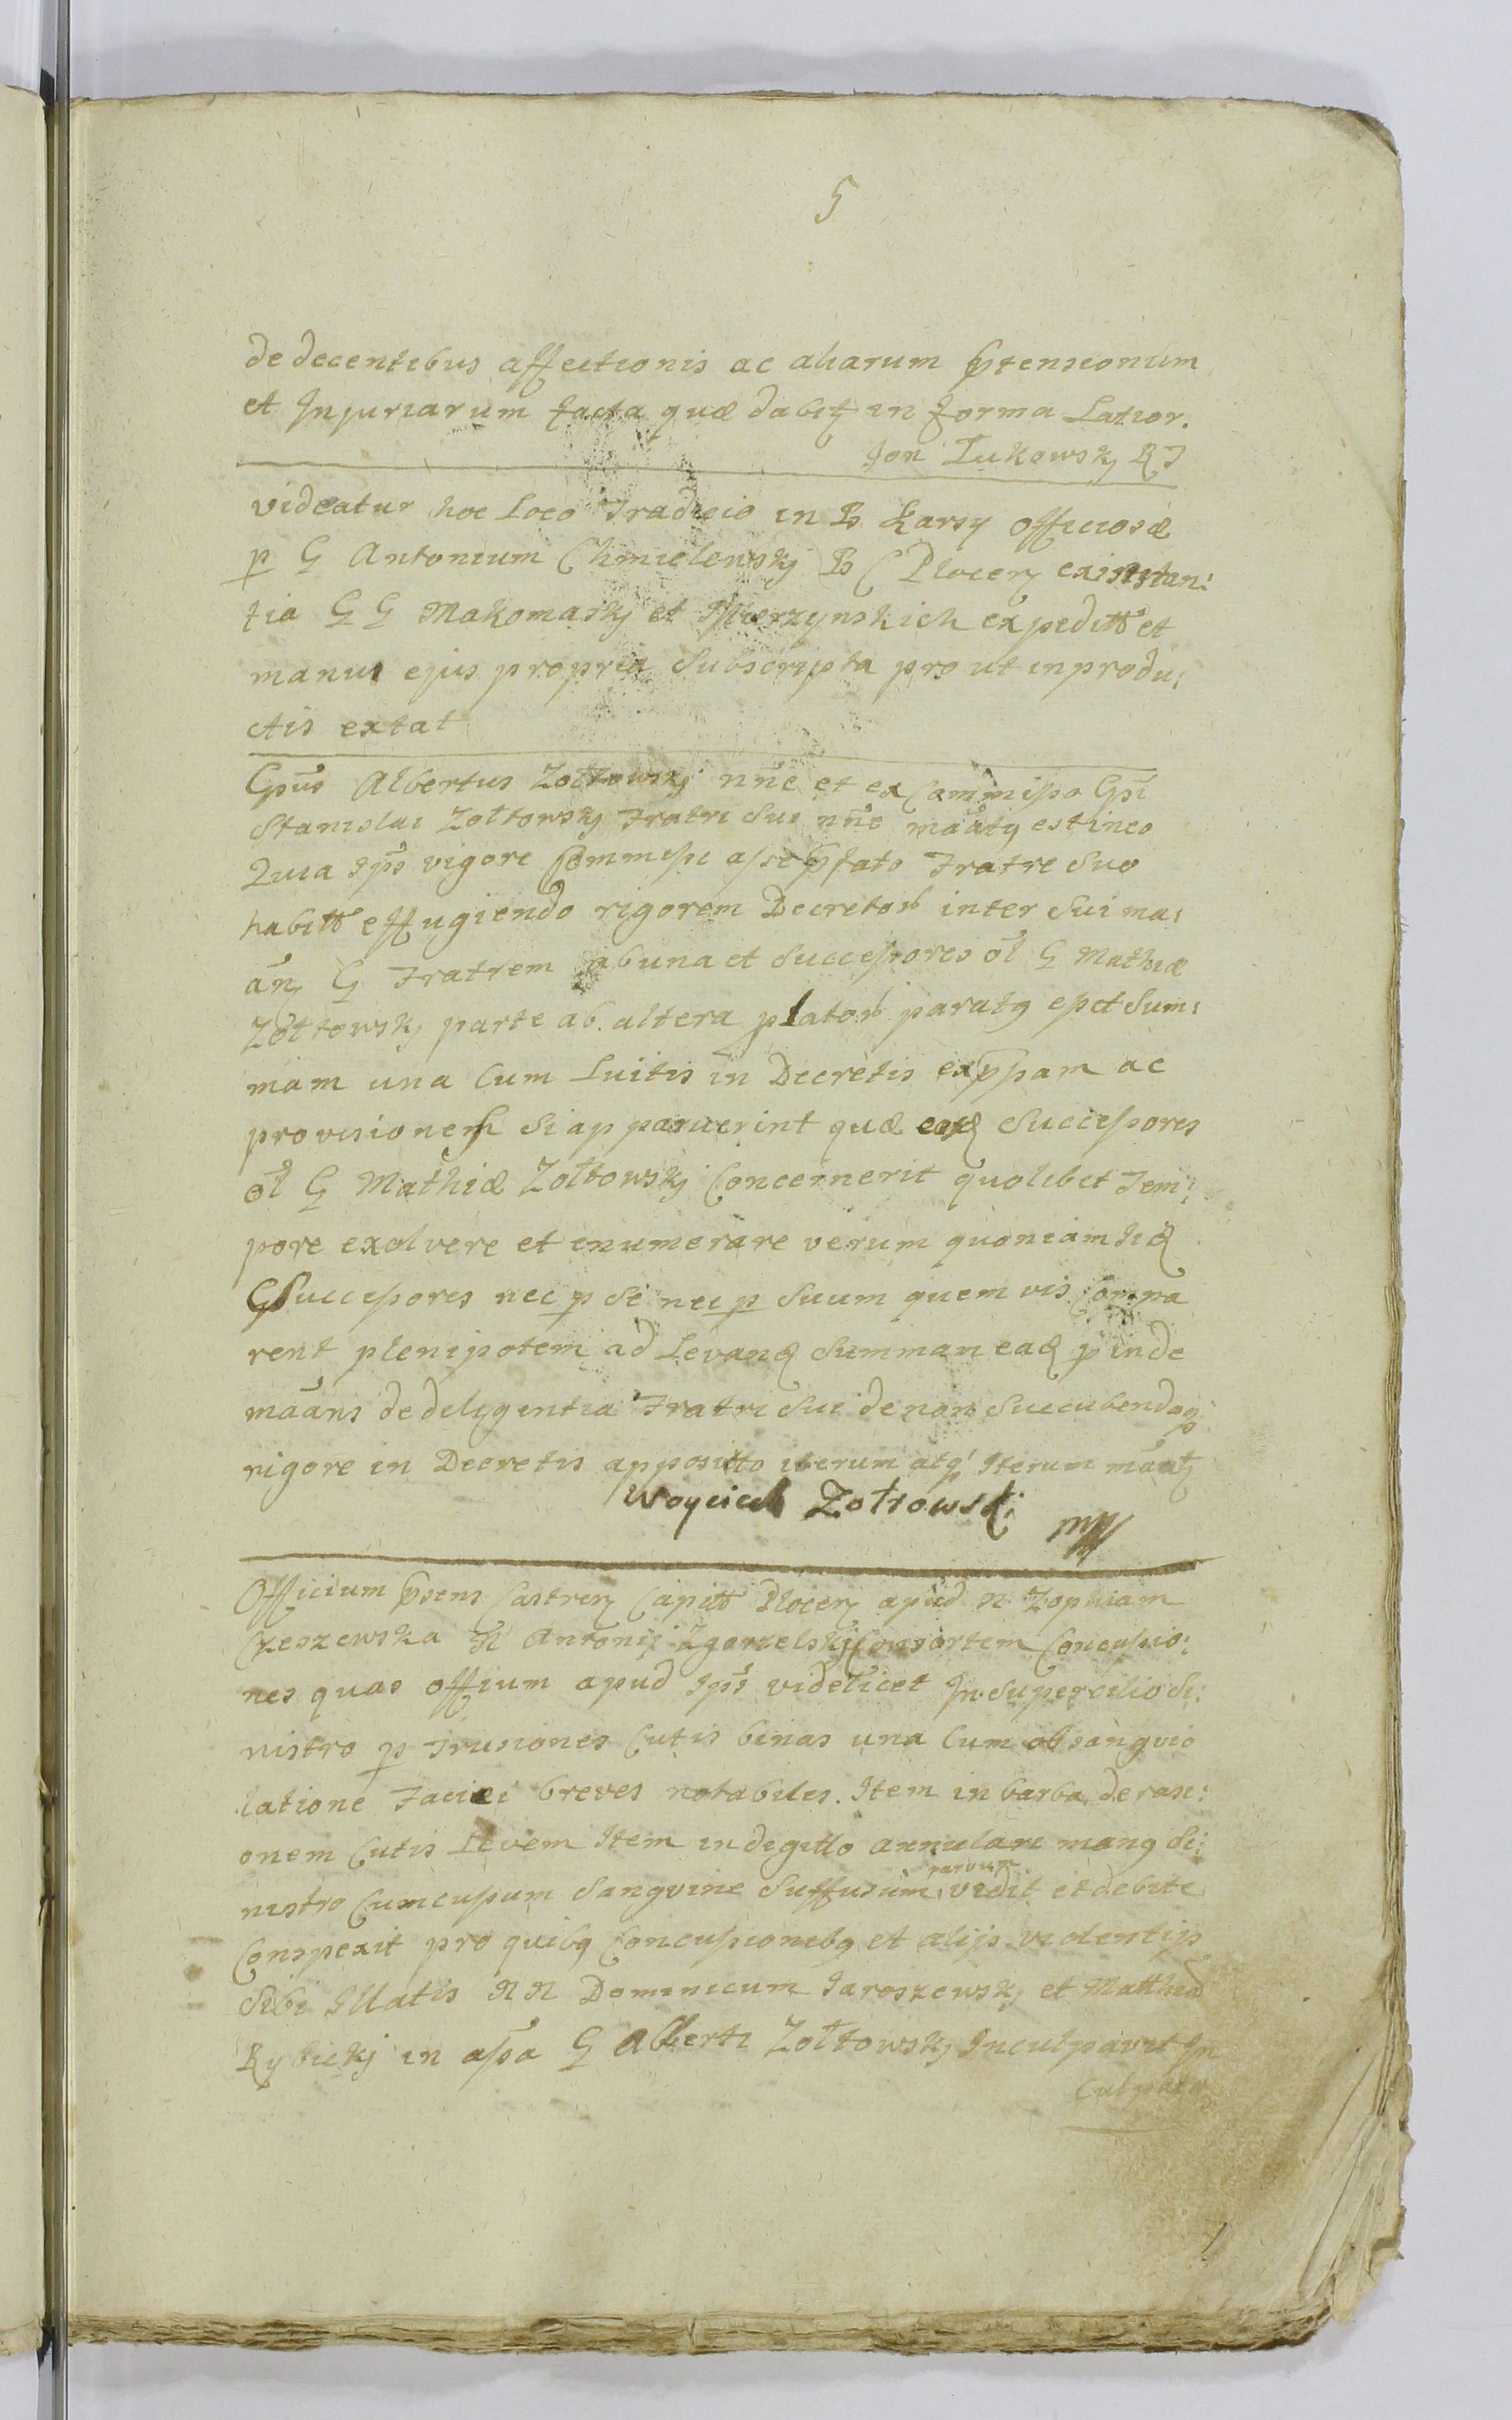 5
de decentibus affectionis ac aliarum prtensionum
et Injuriarum facta quæ dabitz in forma Latior.
Jon Łukowskj RJ
videatur hoc Loco Tradicio in B. Karsy officiosæ
p G Antonium Chmielewskj B C Plocen ex instan:
tia G G Makomaskj et expeditt et
manu ejus propria Subscripta pro ut in produ:
ctis extat
Gpus Albertus Zołtowskj nne et ex Commisso Gpi
Stanislai Zołtowskj Fratri Sui nne maatq est ineo
Quia Ips vigore Commissi asse prfato Fratre Suo
habitt effugiendo rigorem Decretor inter Sui ma:
an G Fratrem ab una et Successores ol G Mathiæ
Zołtowskj parte ab altera plator paratq esset Sum:
mam una Cum Luitis in Decretis exppam ac
provisionem Si apparuerint quæ eosq Successores
ol G Mathiæ Zołtowskj Concernerit quolibet Tem:
pore exolvere et enumerare verum quoniam Iiq
G Successores nec p Se nec p Suum quem vis Compa
rent plenipotem ad Levanq Summan eaq p inde
maans de deligentia Fratri Sui de non Succubendoq
rigore in Decretis appositto iterum atq Iterum maatz
Woyciech Zołtowski
mpp
Officium prsens Castren Capitt Plocen apud N Zophiam
Czeszewska N Antonij Zgorzelskj Consortem Concussio:
nes quas offium apud Ips videlicet In Supercilio Si:
nistro p Trusiones Cutis binas una Cum obsangvio
latione Faciei breves notabiles. Item in barba derasi:
onem Cutis Levem Item in degitto annulari manq Si:
nistro Cumcussum Sangvine Suffusum parvum vidit et debite
Conspexit pro quibq Concussionebq et alijs violentijs
Sibi Illatis N N Dominicum Jaroszewskj et Matthiā
Rybickj in assa G Alberti Zołtowskj Inculpavit In
Culpatq